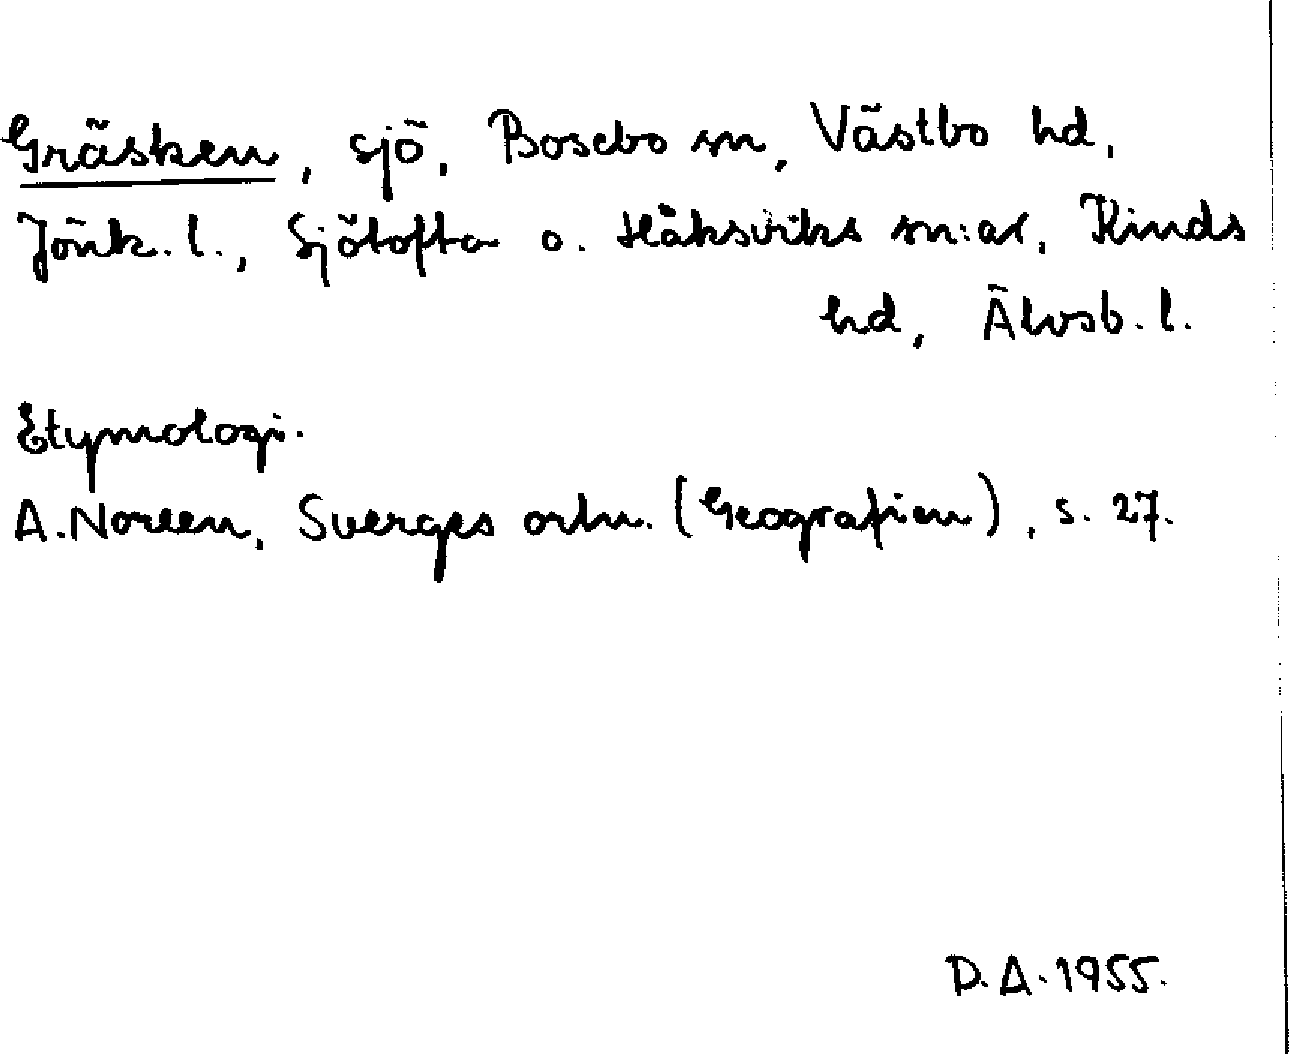 Gräsken, sjö, Bosebo sn, Västbo hd,
Jönk. l., Sjötofta o. Håksviks sn:ar, Kinds
hd, Älvsb. l.
Etymologi.
A. Noreen, Sverges ortn. (Geografien), s. 27.
D. A. 1955.